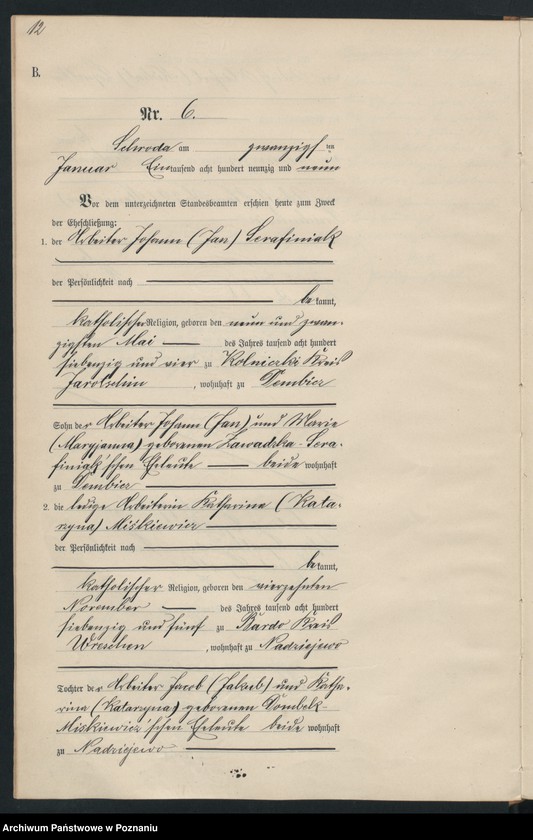 12
B.
Nr. 6.
Schroda am zwanzigsten
Januar Eintausend acht hundert neunzig und neun
Vor dem unterzeichneten Standesbeamten erschien heute zum Zweck
der Eheschließung:
1. der Arbeiter Johann (Jan) Serafiniak
der Persönlichkeit nach
bekannt,
katholischer Religion, geboren den neun und zwan-
zigsten Mai des Jahres tausend acht hundert
siebenzig und vier zu Kolniczki Kreis
Jarotschin, wohnhaft zu Dembicz
Sohn der Arbeiter Johann (Jan) und Marie
(Maryjanna) geborenen Zawadzka-Sera-
finiak'schen Eheleute beide wohnhaft
zu Dembicz
2. die ledige Arbeiterin Katharina (Kata-
rzyna) Miśkiewicz
der Persönlichkeit nach
bekannt,
katholischer Religion, geboren den vierzehnten
November des Jahres tausend acht hundert
siebenzig und fünf zu Bardo Kreis
Wreschen, wohnhaft zu Nadziejewo
Tochter der Arbeiter Jacob (Jakub) und Katha-
rina (Katarzyna) geborenen
Miśkiewicz'schen Eheleute beide wohnhaft
zu Nadziejewo
Archiwum Państwowe w Poznaniu